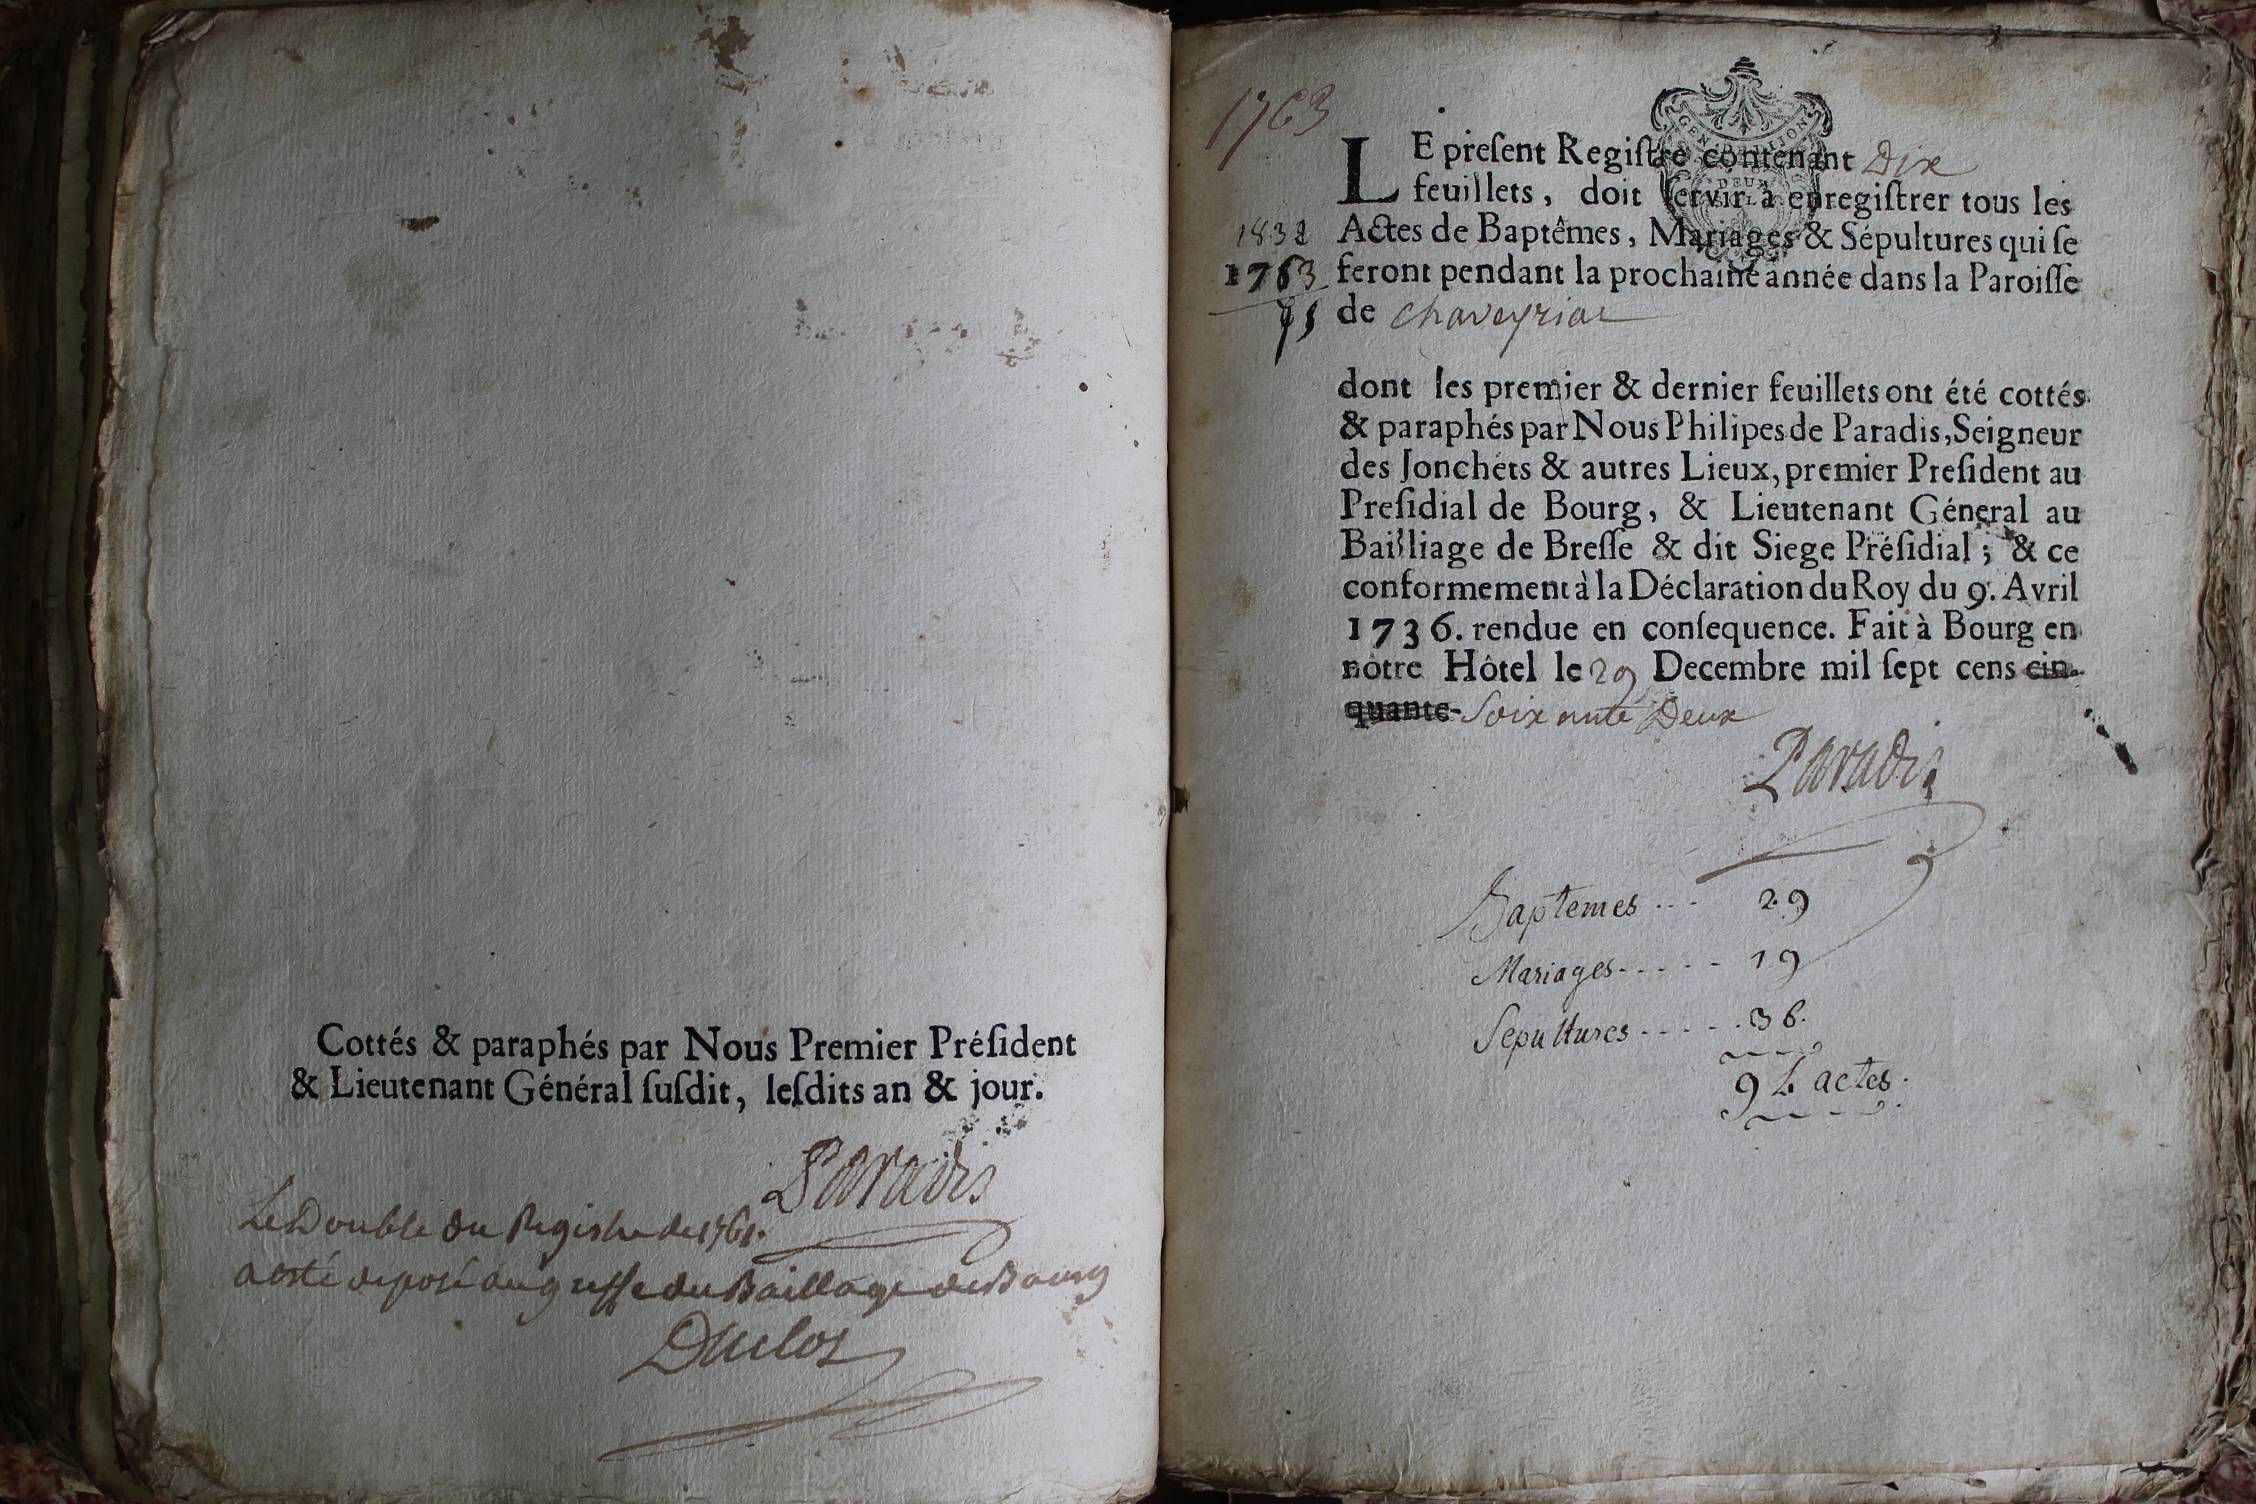 Cottés & paraphés par Nous Premier Préſident
& Lieutenant Général ſuſdit, leſdits an & jour.
Paradis
Le Double du Registre de 1761.
a esté deposé au greffe du Baillage de Bourg
Duclos
1763
GEN. DE DIJON
DEUX
LE preſent Regiſtre contenant Dix
feuillets, doit ſervir à enregiſtrer tous les
1832 Actes de Baptêmes, Mariages & Sépultures qui ſe
1763 feront pendant la prochaine année dans la Paroiſſe
de chaveyriac
dont les premier & dernier feuillets ont été cottés
& paraphés par Nous Philipes de Paradis, Seigneur
des Jonchets & autres Lieux, premier Preſident au
Preſidial de Bourg, & Lieutenant Géneral au
Bailliage de Breſſe & dit Siege Préſidial; & ce
conformement à la Déclaration du Roy du 9. Avril
1736. rendue en conſequence. Fait à Bourg en
nôtre Hôtel le 29 Decembre mil ſept cens cin-
quante- Soixante Deux
Paradis
Baptemes --- 29
Mariages ----- 19
Sepultures ----- 36.
actes.